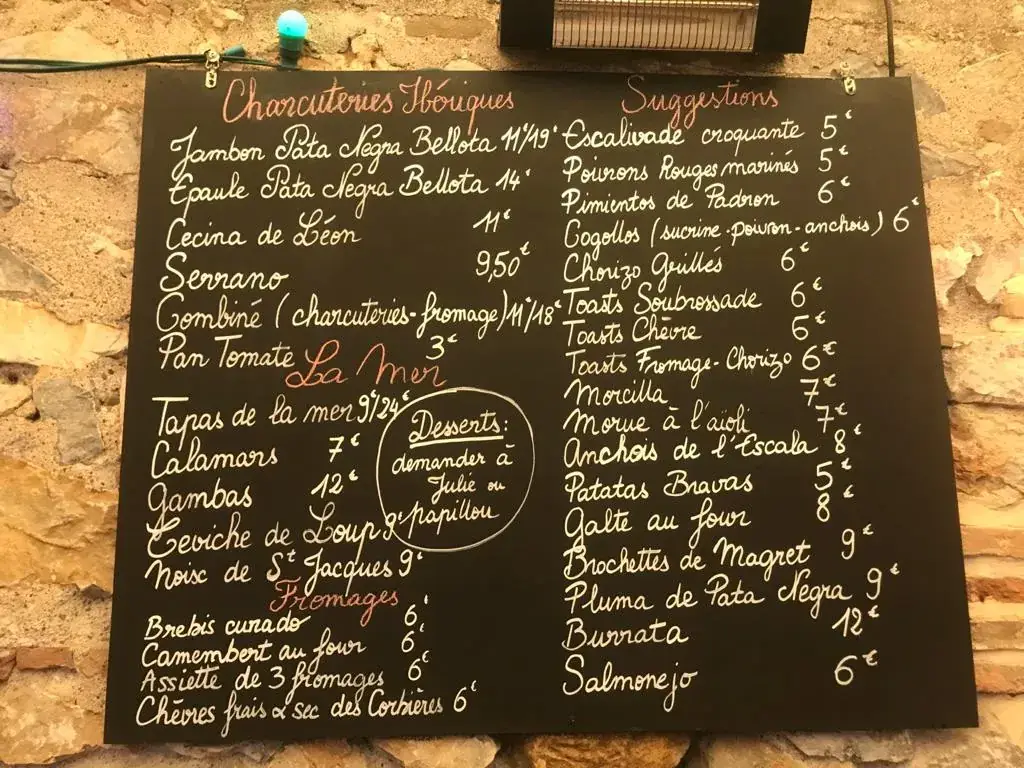 Charcuteries Ibériques
Jambon Pata Negra Bellota 11€/19€
Epaule Pata Negra Bellota 14€
Cecina de Léon 11€
Serrano 9,50€
Combiné (charcuteries-fromage) 11€/18€
Pan Tomate 3€
La Mer
Tapas de la mer 9€/24€
Calamars 7€
Gambas 12€
Ceviche de Loup 9€
Noix de St Jacques 9€
Desserts:
demander à
Julie ou
papillou
Fromages
Brebis curado 6€
Camembert au four 6€
Assiette de 3 fromages 6€
Chèvres frais & sec des Corbières 6€
Suggestions
Escalivade croquante 5€
Poivrons Rouges marinés 5€
Pimientos de Padron 6€
Cogollos (sucrine-poivron-anchois) 6€
Chorizo Grillés 6€
Toasts Soubrossade 6€
Toasts Chèvre 6€
Toasts Fromage-Chorizo 6€
Morcilla 7€
Morue à l'aïoli 7€
Anchois de l'Escala 8€
Patatas Bravas 5€
Galte au four 8€
Brochettes de Magret 9€
Pluma de Pata Negra 9€
Burrata 12€
Salmorejo 6€